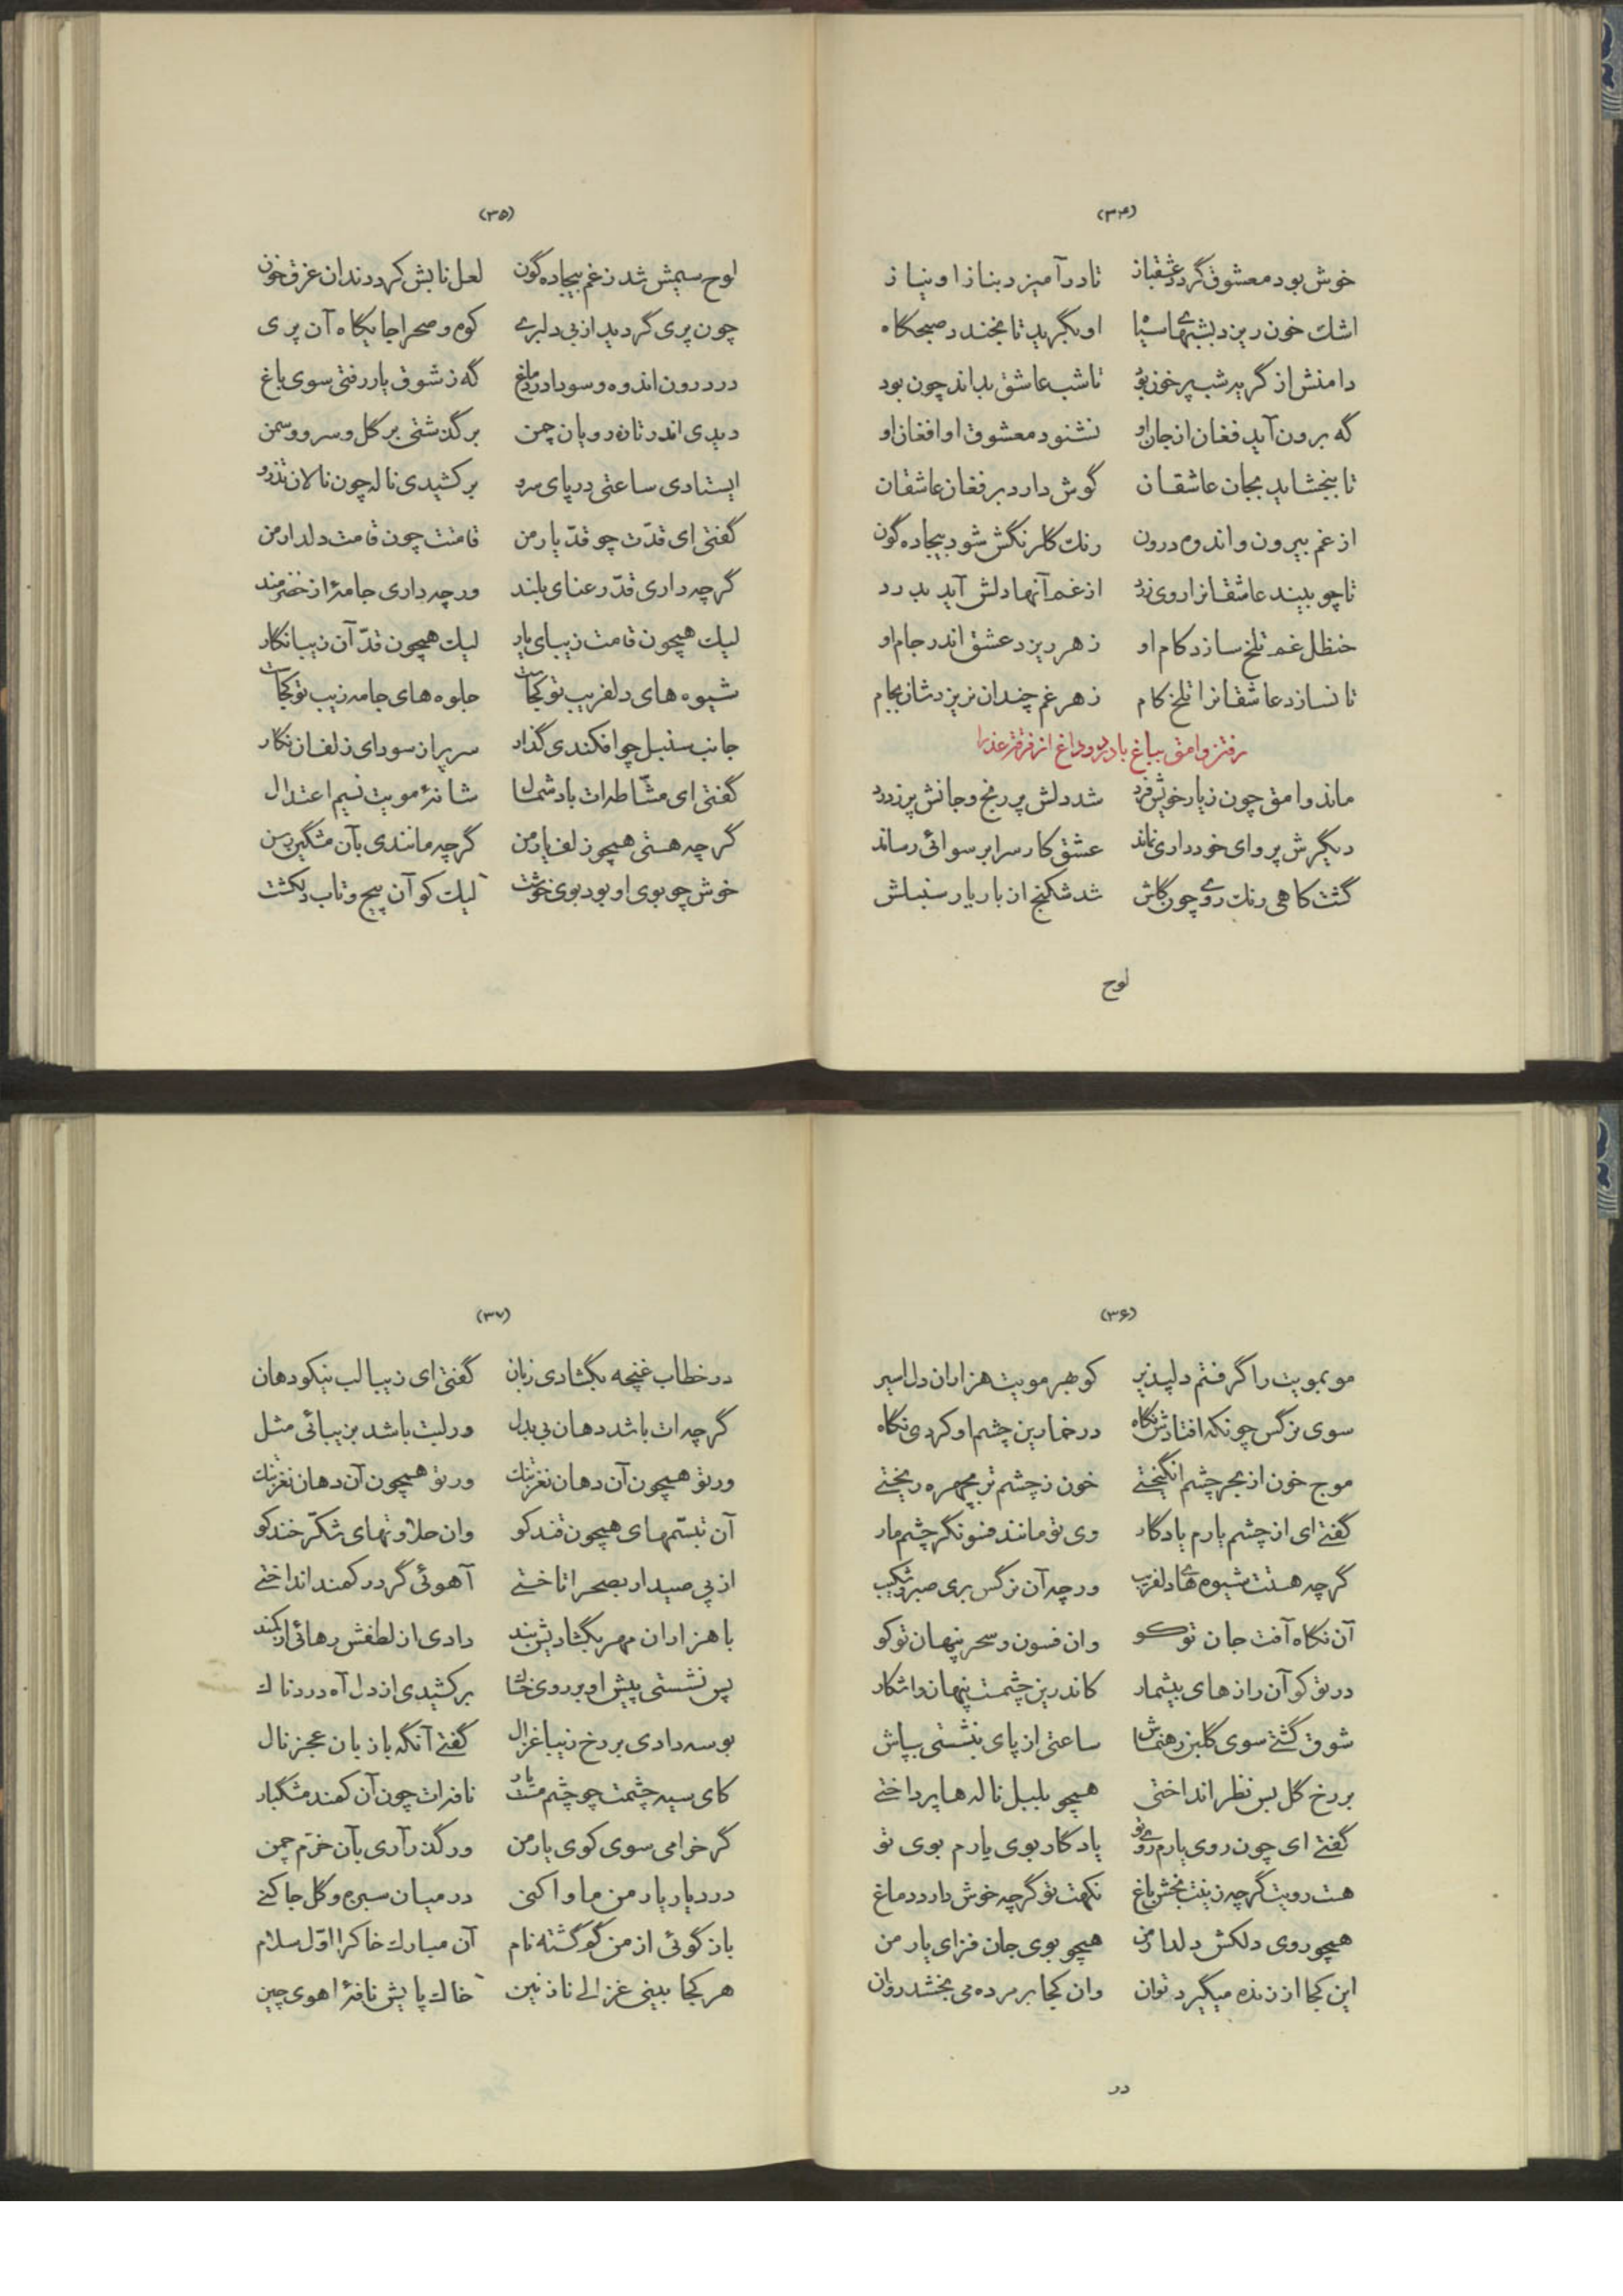 (۳۴)
خوش بود معشوق گردد عشقباز تا درآمیزد بناز او نیاز
اشك خون ریزد بشبهای سیاه او بگرید تا بخندد صبحگاه
دامنش از گریه شب پر خون بود تا شب عاشق بداند چون بود
گه برون آید فغان از جان او نشنود معشوق او افغان او
تا ببخشاید بجان عاشقان گوش دارد بر فغان عاشقان
از غم بیرون و اندوه درون رنك گلرنگش شود بیجاده گون
تا چو بیند عاشقانرا روی زرد از غم آنها دلش آید بدرد
حنظل غم تلخ سازد کام او زهر ریزد عشق اندر جام او
تا نسازد عاشقانرا تلخ کام زهر غم چندان نریزدشان بجام
رفتن وامق بباغ با درد و داغ از فرقت عذرا
ماند وامق چون ز یار خویش فرد شد دلش پر رنج و جانش پر ز درد
دیگرش پروای خودداری نماند عشق کارش را برسوائی رساند
گشت کاهی رنك روی چون گلش شد شکنج از بار یار سنبلش
لوح
(۳۵)
لوح سیمش شد ز غم بیجاده گون لعل نابش کرد دندان غرق خون
چون پری گردید از بی دلبری کوه و صحرا جایگاه آن پری
درد درون اندوه و سودا در دماغ گه ز شوق یار رفتی سوی باغ
دیدی اندر تازه رویان چمن برگذشتی بر گل و سرو و سمن
ایستادی ساعتی در پای سرو برکشیدی ناله چون نالان تذرو
گفتی ای قدّت چو قدّ یار من قامتت چون قامت دلدار من
گرچه داری قدّ رعنای بلند ورچه داری جامۀ از خز و پرند
لیك همچون قامت زیبای یار لیك همچون قدّ آن زیبا نگار
شیوه های دلفریب تو کجاست جلوه های جامه زیب تو کجاست
جانب سنبل چو افکندی گذار سر پر از سودای زلفان نگار
گفتی ای مشّاطه ات باد شمال شانۀ مویت نسیم اعتدال
گرچه هستی همچو زلف یار من گرچه مانندی بآن مشگین رسن
خوش چو بوی او بود بوی خوشت لیك کو آن پیچ و تاب دلکشت
(۳۶)
مو بمویت را گرفتم دلپذیر کو بهر مویت هزاران دل اسیر
سوی نرگس چونکه افتادش نگاه در خمارین چشم او کردی نگاه
موج خون از بحر چشم انگیختی خون ز چشم تر بچهره ریختی
گفتی ای از چشم یارم یادگار وی تو مانند فسونگر چشم یار
گرچه هستت شیوه های دلفریب ورچه آن نرگس بری صبر و شکیب
آن نگاه آفت جان تو کو وان فسون و سحر پنهان تو کو
در تو کو آن رازهای بیشمار کاندرین چشمت پنهان و اشکار
شوق گشتی سوی گلبن رهنماش ساعتی از پای بنشستی بپاش
بر رخ گل بس نظر انداختی همچو بلبل ناله ها پرداختی
گفتی ای چون روی یارم روی تو یادگار بوی یارم بوی تو
هست رویت گرچه زینت بخش باغ نکهت تو گرچه خوش دارد دماغ
همچو روی دلکش دلدار من همچو بوی جان فزای یار من
این کجا از زنده میگیرد توان وان کجا بر مرده می بخشد روان
در
(۳۷)
در خطاب غنچه بگشادی زبان گفتی ای زیبا لب نیکو دهان
گرچه ات باشد دهان بی بدل ور لبت باشد بزیبائی مثل
ور تو همچون آن دهان نغز تنك ور تو همچون آن دهان نغز تنك
آن تبسّمهای همچون قند کو وان حلاوتهای شکّر خند کو
از پی صید ار بصحرا تاختی آهوئی گر در کمند انداختی
با هزاران مهر بگشادیش بند دادی از لطفش رهائی از کمند
پس نشستی پیش او بر روی خاك برکشیدی از دل آه دردناك
بوسه دادی بر رخ زیبا غزال گفتی آنگه با زبان عجز نال
کای سیه چشمت چو چشم مست یار نافه ات چون آن کمند مشگبار
گر خرامی سوی کوی یار من ور گذر آری بآن خرّم چمن
در دیار یار من ماوا کنی در میان سبزه و گل جا کنی
باز گوئی از من گم گشته نام آن مبارك خاك را اوّل سلام
هر کجا بینی غزالی نازنین خاك پایش نافۀ اهوی چین